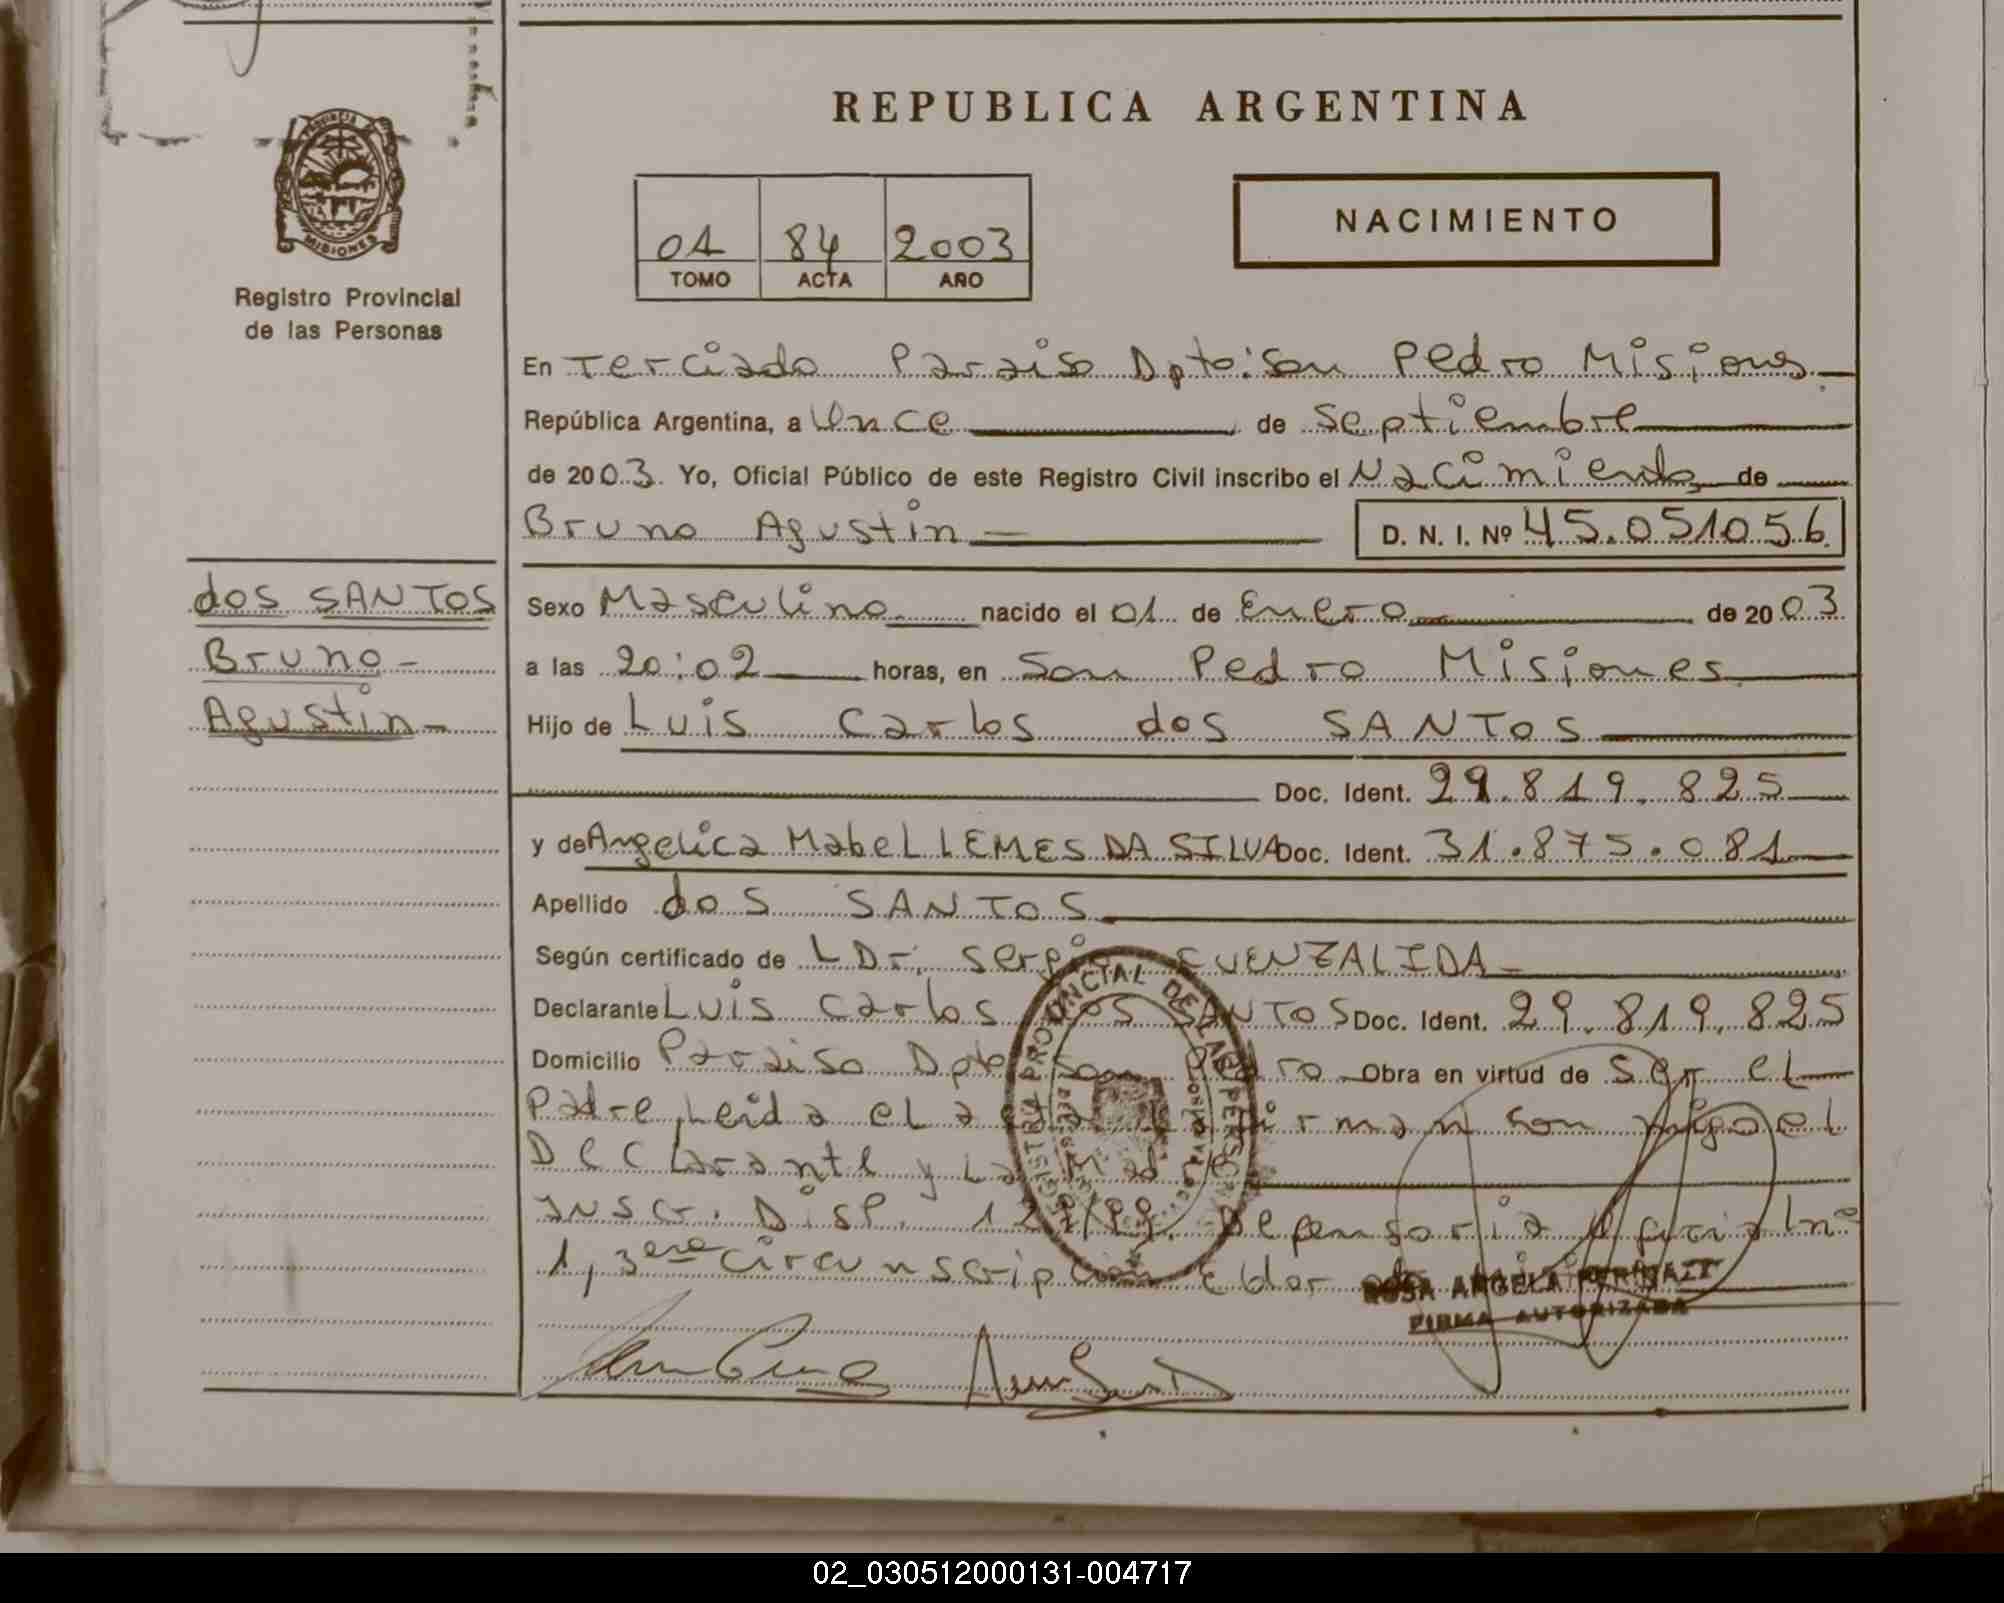 REPUBLICA ARGENTINA
PROVINCIA DE
MISIONES
Registro Provincial
de las Personas
01 84 2003
TOMO ACTA AÑO
NACIMIENTO
En Terciado Paraiso Dpto: San Pedro Misiones
República Argentina, a Once de Septiembre
de 2003. Yo, Oficial Público de este Registro Civil inscribo el Nacimiento de
Bruno Agustin D. N. I. Nº 45.051056
dos SANTOS
Bruno-
Agustin-
Sexo Masculino nacido el 01 de Enero de 2003
a las 20:02 horas, en San Pedro Misiones
Hijo de Luis Carlos dos SANTOS
Doc. Ident. 29.819.825
y de Angelica Mabel LEMES DA SILVA Doc. Ident. 31.875.081
Apellido dos SANTOS
Según certificado de L Dr. Sergio FUENZALIDA
Declarante Luis Carlos dos SANTOS Doc. Ident. 29.819.825
Domicilio Paraiso Dpto San Pedro Obra en virtud de ser el
Padre, Leida el acta la firman con migo el
Declarante y La Madre
Inscr. Disp. /99. Defensoria Oficial nº
1, 3era circunscripcion Eldor
REGISTRO PROVINCIAL DE LAS PERSONAS
ROSA ANGELA
FIRMA AUTORIZADA
02_030512000131-004717